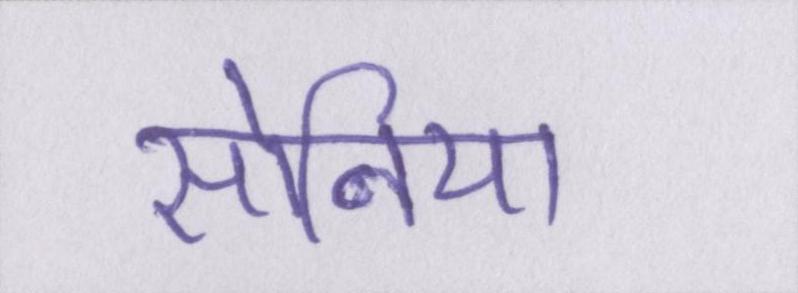 सोनिया